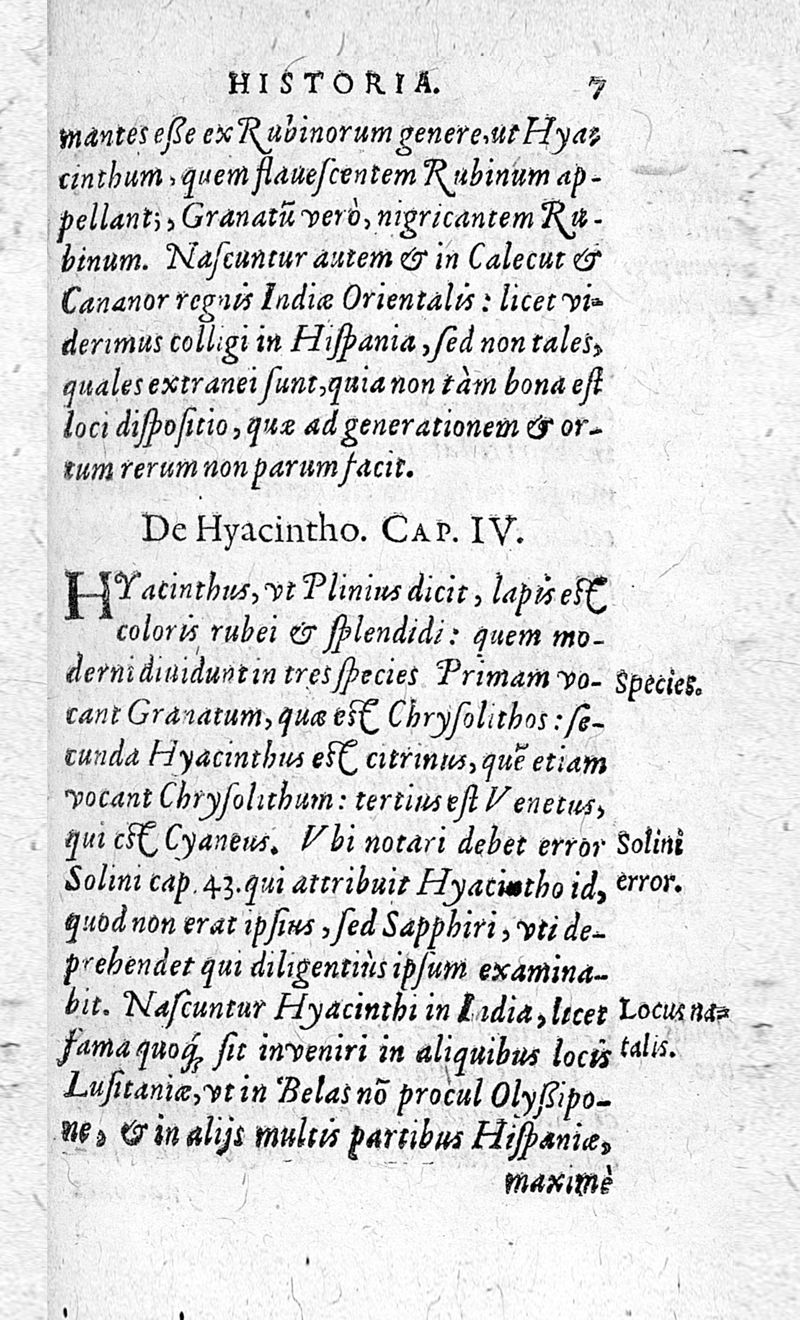 HISTORIA. 7
mantes eſſe ex Rubinorum genere, ut Hya-
cinthum, quem flaueſcentem Rubinum ap-
pellant;, Granatũ verò, nigricantem Ru-
binum. Naſcuntur autem & in Calecut &
Cananor regnis Indiæ Orientalis: licet vi-
derimus colligi in Hiſpania, ſed non tales,
quales extranei ſunt, quia non tàm bona eſt
loci diſpoſitio, quæ ad generationem & or-
tum rerum non parum facit.
De Hyacintho. CAP. IV.
HYacinthus, vt Plinius dicit, lapis eſt
coloris rubei & ſplendidi: quem mo-
derni diuidunt in tres ſpecies Primam vo-
Species.
cant Granatum, quæ eſt Chryſolithos: ſe-
cunda Hyacinthus eſt citrinus, quẽ etiam
vocant Chryſolithum: tertius eſt Venetus,
qui eſt Cyaneus. Vbi notari debet error
Solini
Solini cap. 43. qui attribuit Hyacintho id,
error.
quod non erat ipſius, ſed Sapphiri, vti de-
prehendet qui diligentiùs ipſum examina-
bit. Naſcuntur Hyacinthi in India, licet
Locus na-
fama quoq́ꝫ ſit inveniri in aliquibus locis
talis.
Luſitaniæ, vt in Belas nõ procul Olyſſipo-
ne, & in alijs multis partibus Hiſpaniæ,
maximè